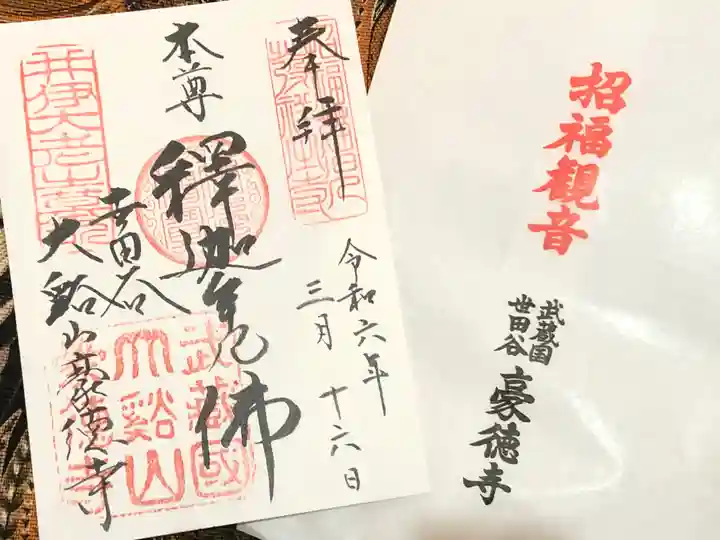 奉拝
令和六年
三月十六日
本尊
釋迦牟尼佛
世田谷
大谿山豪徳寺
武蔵國
大谿山
豪徳寺
招福観音
武蔵国
世田谷
豪徳寺